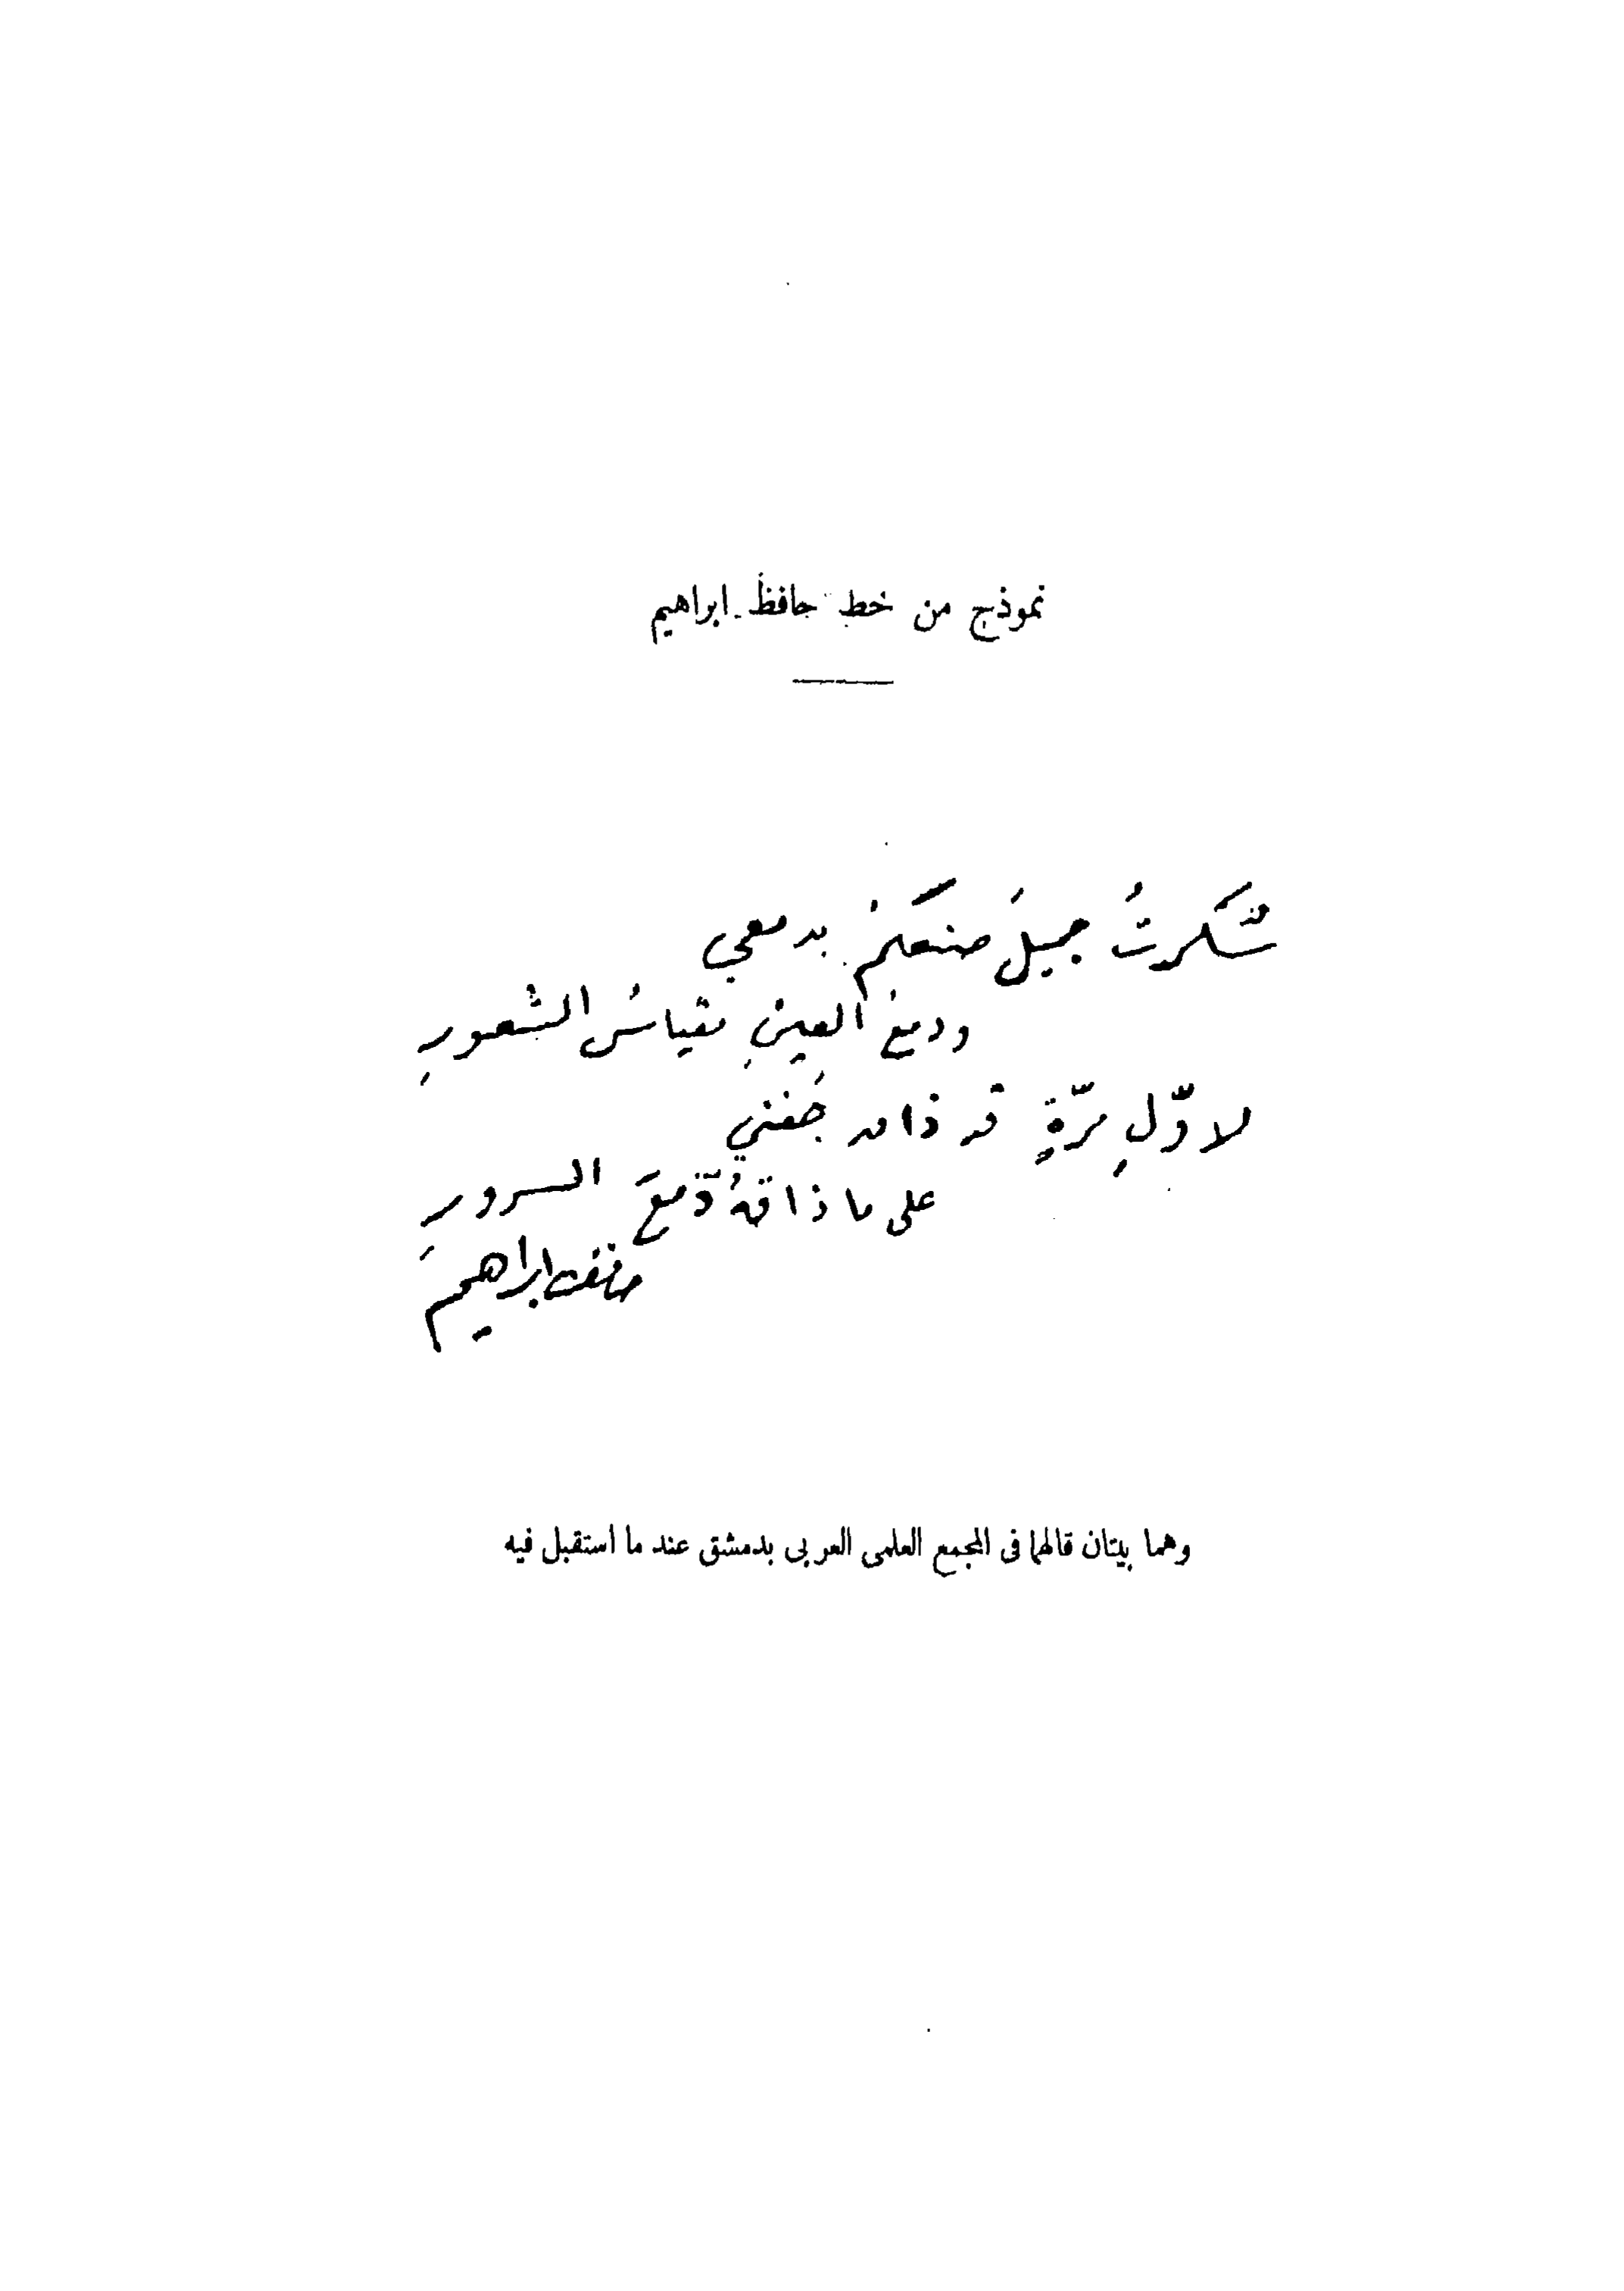 نموذج من خط حافظ ابراهيم
شَكرتُ جميلَ صنعكمْ بدمعي
ودمعُ العينِ مقياسُ الشعورِ
لاوّلِ مرّةٍ قد ذاق جَفني
على ما ذاقهُ دَمعَ السرورِ
حافظ ابراهيم
وهما بيتان قالهما فى المجمع العلمى العربى بدمشق عند ما استقبل فيه